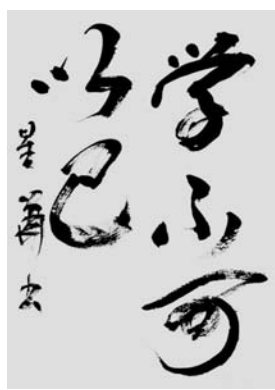 学不可
以已
星 书